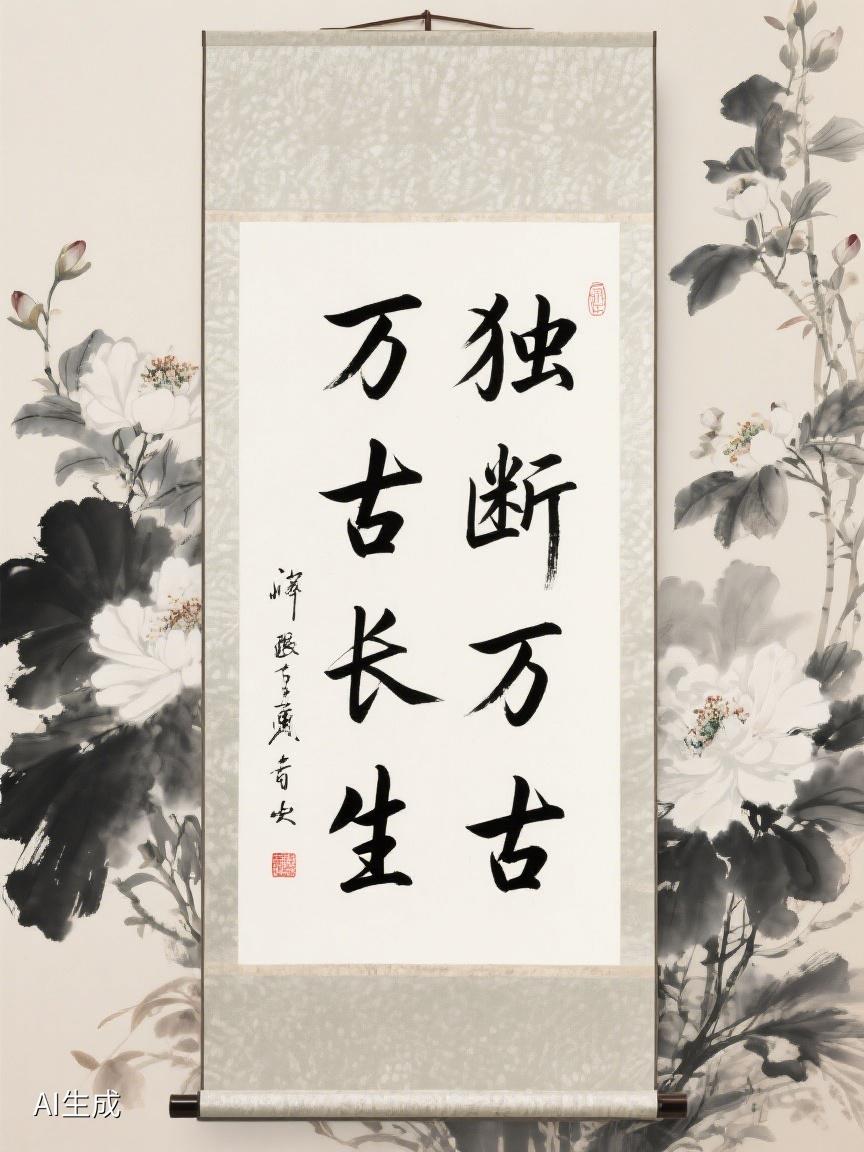 独断万古
万古长生
AI生成